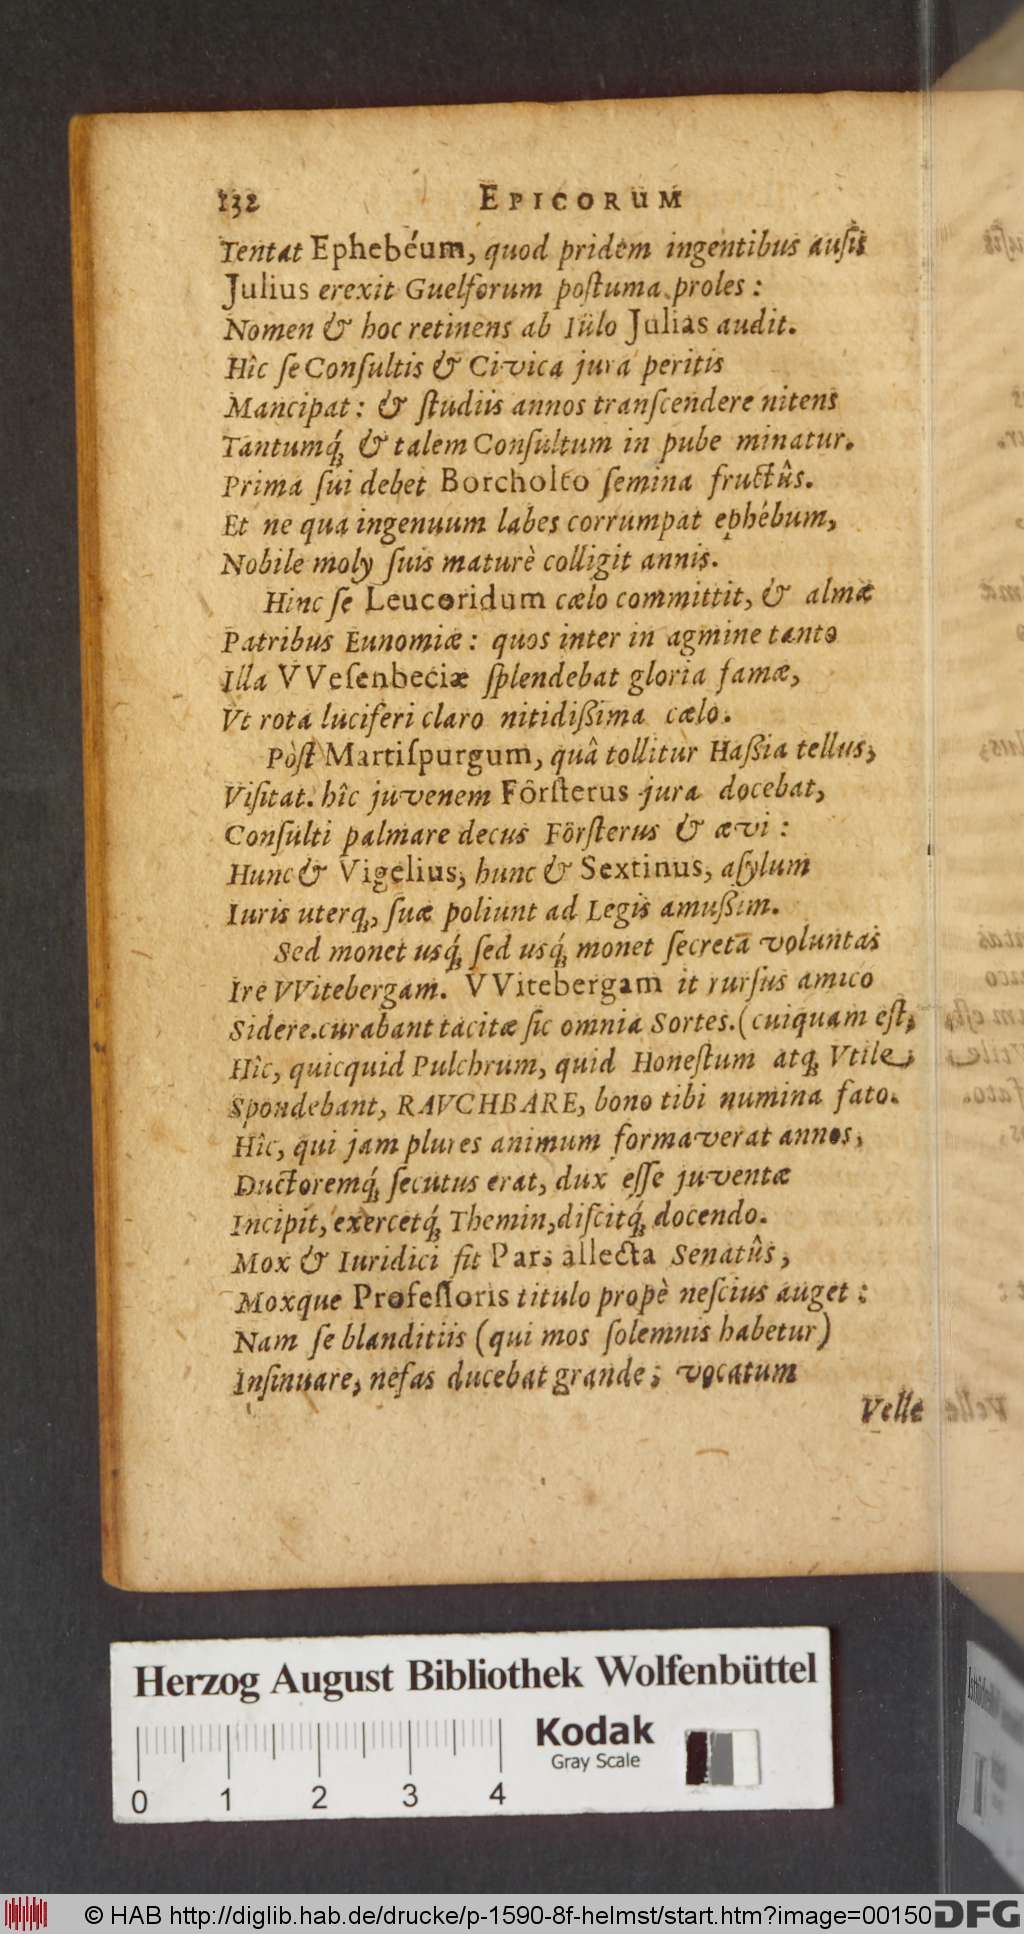 132 EPICORUM
Tentat Ephebéum, quod pridem ingentibus ausis
Julius erexit Guelforum postuma proles:
Nomen & hoc retinens ab Iülo Julias audit.
Hîc se Consultis & Civica jura peritis
Mancipat: & studiis annos transcendere nitens
Tantumq́; & talem Consultum in pube minatur.
Prima sui debet Borcholto semina fructûs.
Et ne qua ingenuum labes corrumpat ephébum,
Nobile moly suis maturè colligit annis.
Hinc se Leucoridum cælo committit, & almæ
Patribus Eunomiæ: quos inter in agmine tanto
Illa VVesenbeciæ splendebat gloria famæ,
Vt rota luciferi claro nitidißima cælo.
Pòst Martispurgum, quâ tollitur Haßia tellus,
Visitat. hîc juvenem Fôrsterus jura docebat,
Consulti palmare decus Fôrsterus & ævi:
Hunc & Vigelius, hunc & Sextinus, asylum
Iuris uterq;, suæ poliunt ad Legis amußim.
Sed monet usq́; sed usq́; monet secreta voluntas
Ire VVitebergam. VVitebergam it rursus amico
Sidere. curabant tacitæ sic omnia Sortes. (cuiquam est,
Hîc, quicquid Pulchrum, quid Honestum atq; Vtile
Spondebant, RAVCHBARE, bono tibi numina fato.
Hîc, qui jam plures animum formaverat annos,
Ductoremq́; secutus erat, dux esse juventæ
Incipit, exercetq́; Themin, discitq́; docendo.
Mox & Iuridici fit Pars allecta Senatûs,
Moxque Professoris titulo propè nescius auget:
Nam se blanditiis (qui mos solemnis habetur)
Insinuare, nefas ducebat grande; vocatum
Velle
Herzog August Bibliothek Wolfenbüttel
Kodak
Gray Scale
0 1 2 3 4
© HAB http://diglib.hab.de/drucke/p-1590-8f-helmst/start.htm?image=00150
DFG